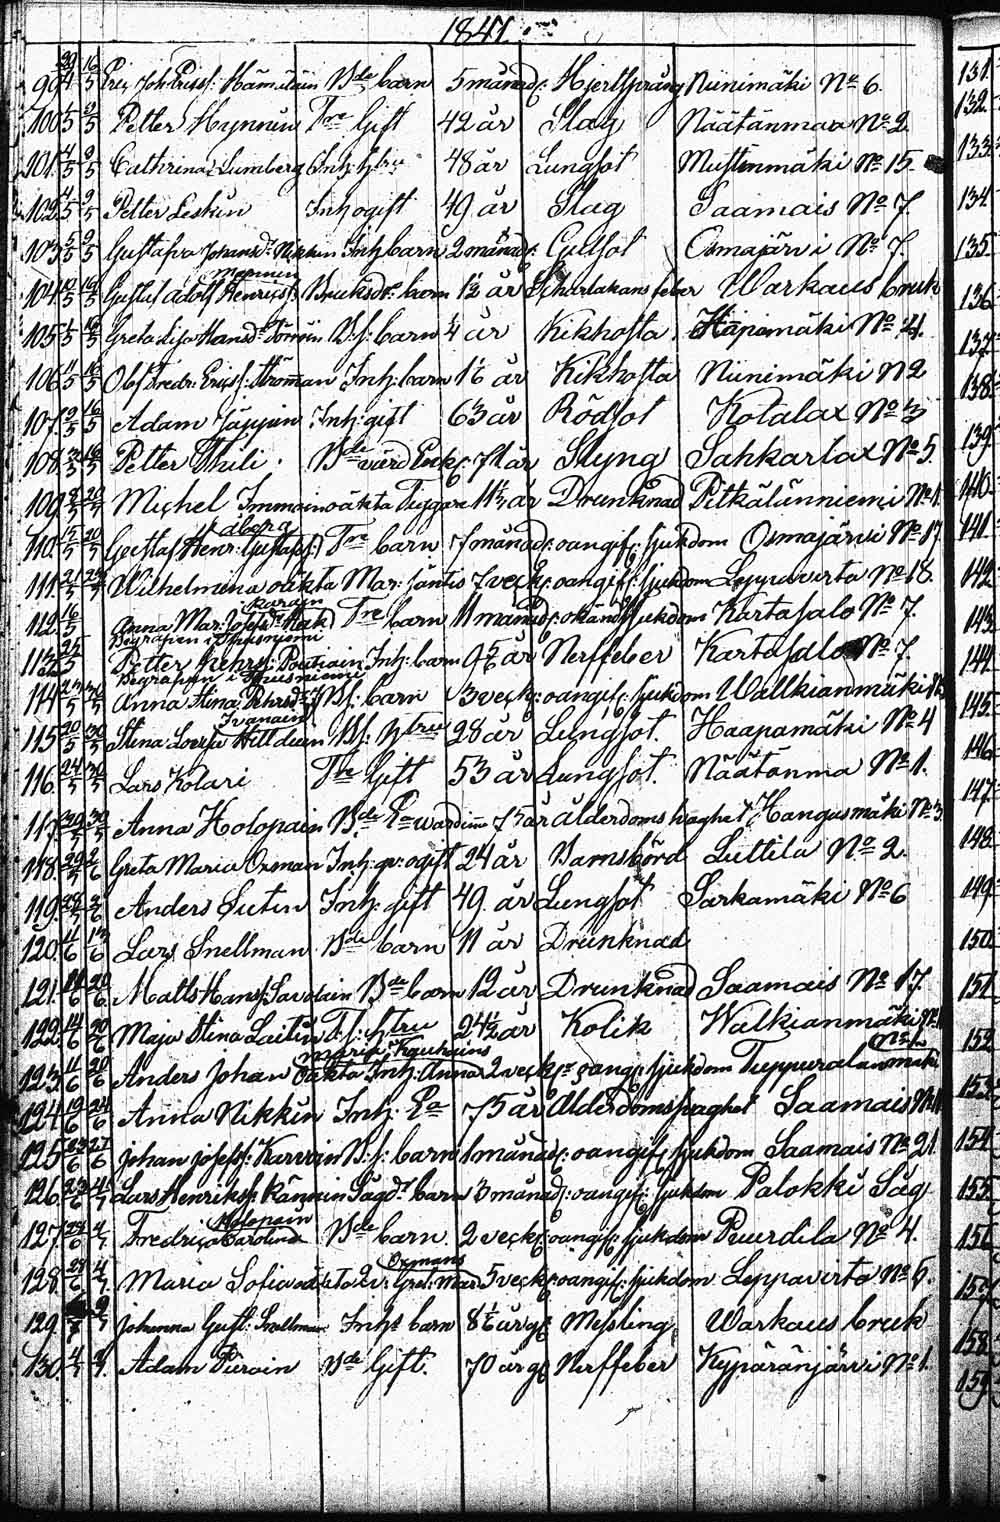 1847
99. 29/4 16/5 Eric Joh: Ericss: Hämäläin Bde barn 5 månad: Hjertsprång Niinimäki No 6.
100. 1/5 2/5 Petter Hynnin Tre Gift 42 år Slag Näätänmaa No 2.
101. 4/5 9/5 Cathrina Lumberg Inh: h:tru 48 år Lungsot Mustinmäki No 15.
102. 4/5 9/5 Petter Leskin Inh ogift 49 år Slag Saamais No 7.
103. 5/5 9/5 Gustafva Johansd: Nikkin Inh: barn 2 månad: Gulsot Osmajärvi No 7.
Monnin
104. 10/5 16/5 Gustaf Adolf Henricss: Bruksdr: barn 1½ år Scharlakans feber Warkaus bruk
105. 1/5 16/5 Greta Lisa Hansd: Torvin B.f: barn ¼ år Kikhosta Häpämäki No 4.
106. 11/5 16/5 Olof Fredr: Ericss: Stroman Inh: barn 1½ år Kikhosta Niinimäki N 2
107. 9/5 16/5 Adam Jäppin Inh: gift 63 år Rödsot Kotalax No 3
108. 16/5 Petter Thili. Bde värd Enk: 71 år Styng Sahkarlax No 5.
109. 9/5 20/5 Michel Immoin oäkta Tiggare 11½ år Drunknad Pitkälänniemi No 1.
Åberg
110. 15/5 20/5 Gustaf Henr: Gustafss: Tre barn 7 månad: oangif: sjukdom Osmajärvi No 17.
111. 21/5 Wilhelmina oäkta Mar: Jäntis 7 veck: oangif: sjukdom Leppävirta No 18.
Karain
112. 16/5 Anna Mar: Josefsd: Hak Tre barn 11 månad: okänd sjukdom Kartasalo No 7.
Begrafven i
113. 25/5 Petter Pehrss: Poutiain Inh: barn 9 år Nerffeber Kartasalo No 7.
Begrafven i
114. 30/5 Anna Stina Pehrsd: B.f: barn 3 veck: oangif: sjukdom Walkianmäki
Ivanain
115. 20/5 30/5 Stina Lovisa Hilldeen B.f: h:tru 28 år Lungsot. Haapamäki No 4
116. 24/5 30/5 Lars Kolari Tre Gift 53 år Lungsot. Näätänma No 1.
117. 29/5 30/5 Anna Holopain Bde Ea wärdin: 75 år Ålderdoms svaghet Kangasmäki No 3.
118. 29/5 2/6 Greta Maria Oxman Inh: qv: ogift 24 år Barnsbörd Luttila No 2.
119. 28/5 2/6 Anders Sutin Inh: gift 49 år Lungsot Sarkamäki No 6
120. 11/6 13/6 Lars Snellman Bde barn 11 år Drunknad
121. 20/6 Matts Hanss: Savolain Bde barn 12 år Drunknad Saamais No 17.
122. 14/6 20/6 Maja Stina Laitin T.f: h:tru 24½ år Kolik Walkianmäki
Maria Kauhains
123. 11/6 20/6 Anders Johan Oäkta Inh: Anna 2 veck: oangif: sjukdom Tuppuralanmäki
124. 19/6 24/6 Anna Nikkin Inh: Ea 75 år Ålderdomssvaghet Saamais No 11
125. 23/6 27/6 Johan Josefss: Karvoin B.f: barn 1 månad: oangif: sjukdom Saamais No 21.
126. 23/6 4/7 Lars Henrikss: Kännin Sågdr: barn 3 månad: oangif: sjukdom Palokki Såg
Holopain
127. 28/6 4/7 Fredrica Carolina Bde barn 2 veck: oangif: sjukdom Puurdila No 4.
Oxmans
128. 28/6 4/7 Maria Sofia oäkta Qv: Gret: Mar: 5 veck: oangif: sjukdom Leppävirta No 6.
129. 9/7 Johanna Gust: Snellman Inhs barn 8½ år g: Messling Warkaus bruk
130. 4/7 9/7. Adam Pirain Bde Gift. 70 år g: Nerffeber Kypäränjärvi No 1.
131.
132.
133.
134.
135.
136.
137.
138.
139.
140.
141.
142.
143.
144.
145.
146.
147.
148.
149.
150.
151.
152
153.
154.
155.
156.
157.
158.
159.